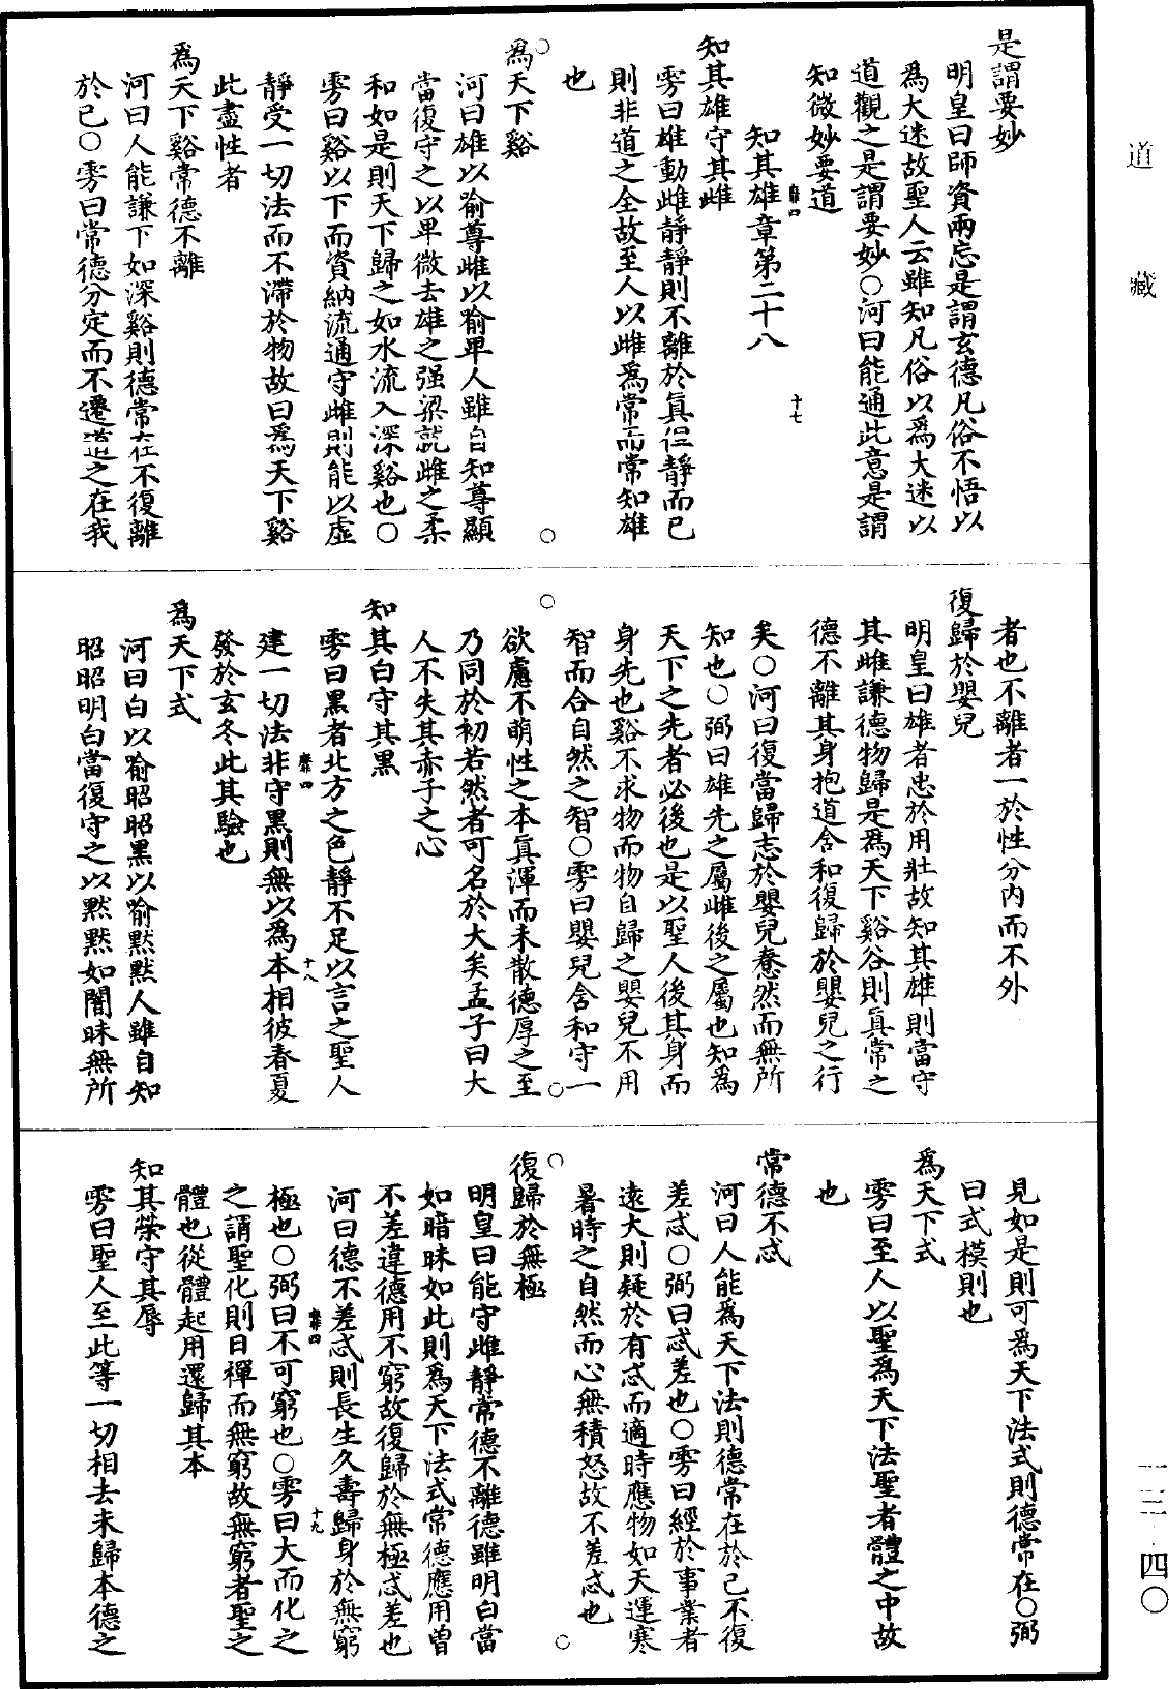 道藏
是謂要妙
明皇曰師資兩忘是謂玄德凡俗不悟以
爲大迷故聖人云雖知凡俗以爲大迷以
道觀之是謂要妙○河曰能通此意是謂
知微妙要道
靡四
十七
知其雄章第二十八
知其雄守其雌
雱曰雄動雌靜靜則不離於眞但靜而已
則非道之全故至人以雌爲常而常知雄
也
爲天下谿
河曰雄以喻尊雌以喻卑人雖自知尊顯
當復守之以卑微去雄之强梁就雌之柔
和如是則天下歸之如水流入深谿也○
雱曰谿以下而資納流通守雌則能以虛
靜受一切法而不滯於物故曰爲天下谿
此盡性者
爲天下谿常德不離
河曰人能謙下如深谿則德常在不復離
於已○雱曰常德分定而不遷道之在我
者也不離者一於性分内而不外
復歸於嬰兒
明皇曰雄者忠於用壯故知其雄則當守
其雌謙德物歸是爲天下谿谷則眞常之
德不離其身抱道含和復歸於嬰兒之行
矣○河曰復當歸志於嬰兒惷然而無所
知也○弼曰雄先之屬雌後之屬也知爲
天下之先者必後也是以聖人後其身而
身先也谿不求物而物自歸之嬰兒不用
智而合自然之智○雱曰嬰兒含和守一
欲慮不萌性之本眞渾而未散德厚之至
乃同於初若然者可名於大矣孟子曰大
人不失其赤子之心
知其白守其黑
雱曰黑者北方之色靜不足以言之聖人
靡四
十八
建一切法非守黑則無以爲本相彼春夏
發於玄冬此其驗也
爲天下式
河曰白以喻昭昭黑以喻默默人雖自知
昭昭明白當復守之以默默如闇昧無所
見如是則可爲天下法式則德常在○弼
曰式模則也
爲天下式
雱曰至人以聖爲天下法聖者體之中故
也
常德不忒
河曰人能爲天下法則德常在於己不復
差忒○弼曰忒差也○雱曰經於事業者
遠大則疑於有忒而適時應物如天運寒
暑時之自然而心無積怒故不差忒也
復歸於無極
明皇曰能守雌靜常德不離德雖明白當
如暗昧如此則爲天下法式常德應用曾
不差違德用不窮故復歸於無極忒差也
河曰德不差忒則長生久壽歸身於無窮
靡四
十九
極也○弼曰不可窮也○雱曰大而化之
之謂聖化則日禪而無窮故無窮者聖之
體也從體起用還歸其本
知其榮守其辱
雱曰聖人至此等一切相去未歸本德之
一三·四〇